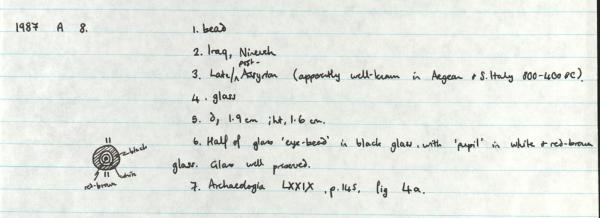 1987 A 8.
1. bead
2. Iraq, Nineveh
3. Late/post-Assyrian (apparently well-known in Aegean & S. Italy 800-400 BC)
4. glass
5. d, 1.9 cm; ht, 1.6 cm.
6. Half of glass 'eye-bead' in black glass, with 'pupil' in white & red-brown
glass. Glass well preserved.
7. Archaeologia LXXIX, p.145, fig 4a.
black
red-brown